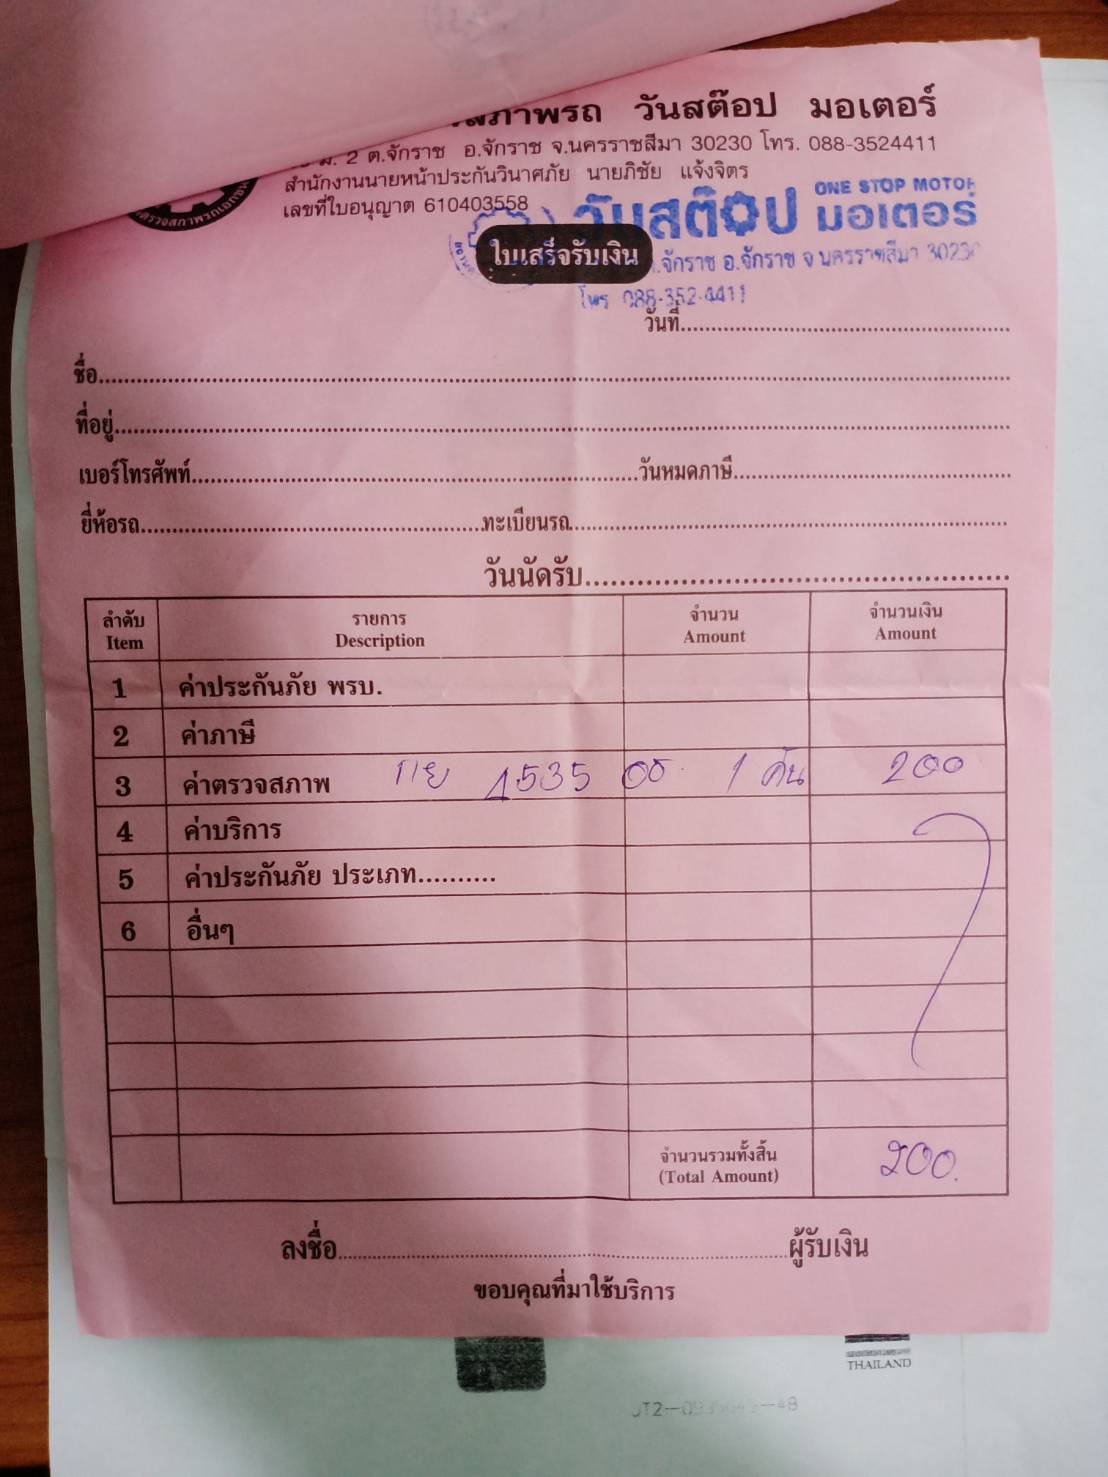 สภาพรถ วันสต๊อป มอเตอร์
ม. 2 ต.จักราช อ.จักราช จ.นครราชสีมา 30230 โทร. 088-3524411
สำนักงานนายหน้าประกันวินาศภัย นายภิชัย แจ้งจิตร
เลขที่ใบอนุญาต 610403558
วันสต๊อป มอเตอร์ ONE STOP MOTOR
ใบเสร็จรับเงิน
.จักราช อ.จักราช จ.นครราชสีมา 30230
โทร 088-352-4411
วันที่
ชื่อ
ที่อยู่
เบอร์โทรศัพท์ วันหมดภาษี
ยี่ห้อรถ ทะเบียนรถ
วันนัดรับ
ลำดับ รายการ จำนวน จำนวนเงิน
Item Description Amount Amount
1 ค่าประกันภัย พรบ.
2 ค่าภาษี
3 ค่าตรวจสภาพ กย 4535 1 คัน 200
4 ค่าบริการ
5 ค่าประกันภัย ประเภท..........
6 อื่นๆ
จำนวนรวมทั้งสิ้น
(Total Amount) 200.
ลงชื่อ ผู้รับเงิน
ขอบคุณที่มาใช้บริการ
THAILAND